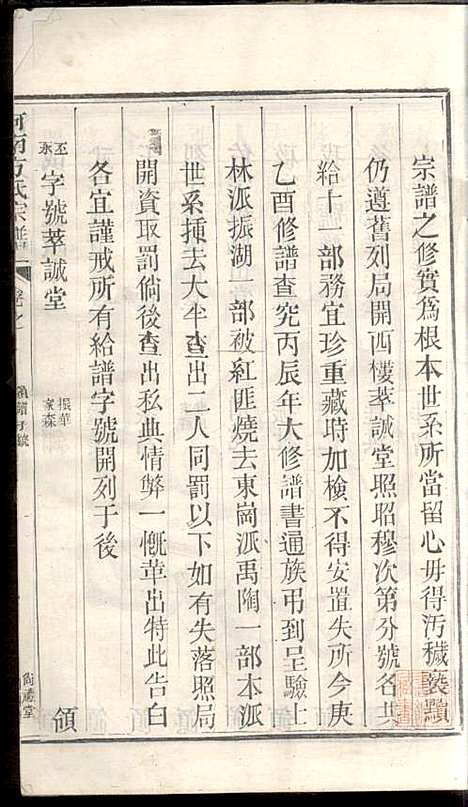 宗譜之修實爲根本世系所當留心毋得汚穢褻黷
仍遵舊列局開西樓萃誠堂照昭穆次第分號名共
給十一部務宜珍重藏時加檢不得安置失所今庚
乙酉修譜查究丙辰年大修譜書通族弔到呈驗上
林派振湖一部被紅匪燒去東崗派禹陶一部本派
世系揷去大半查出二人同罰以下如有失落照局
開資取罰倘後查出私典情弊一慨革出特此告白
各宜謹戒所有給譜字號開列于後
丕永字號萃誠堂 振華 家森 領
河南方氏宗譜 卷之 領譜字號 尙德堂